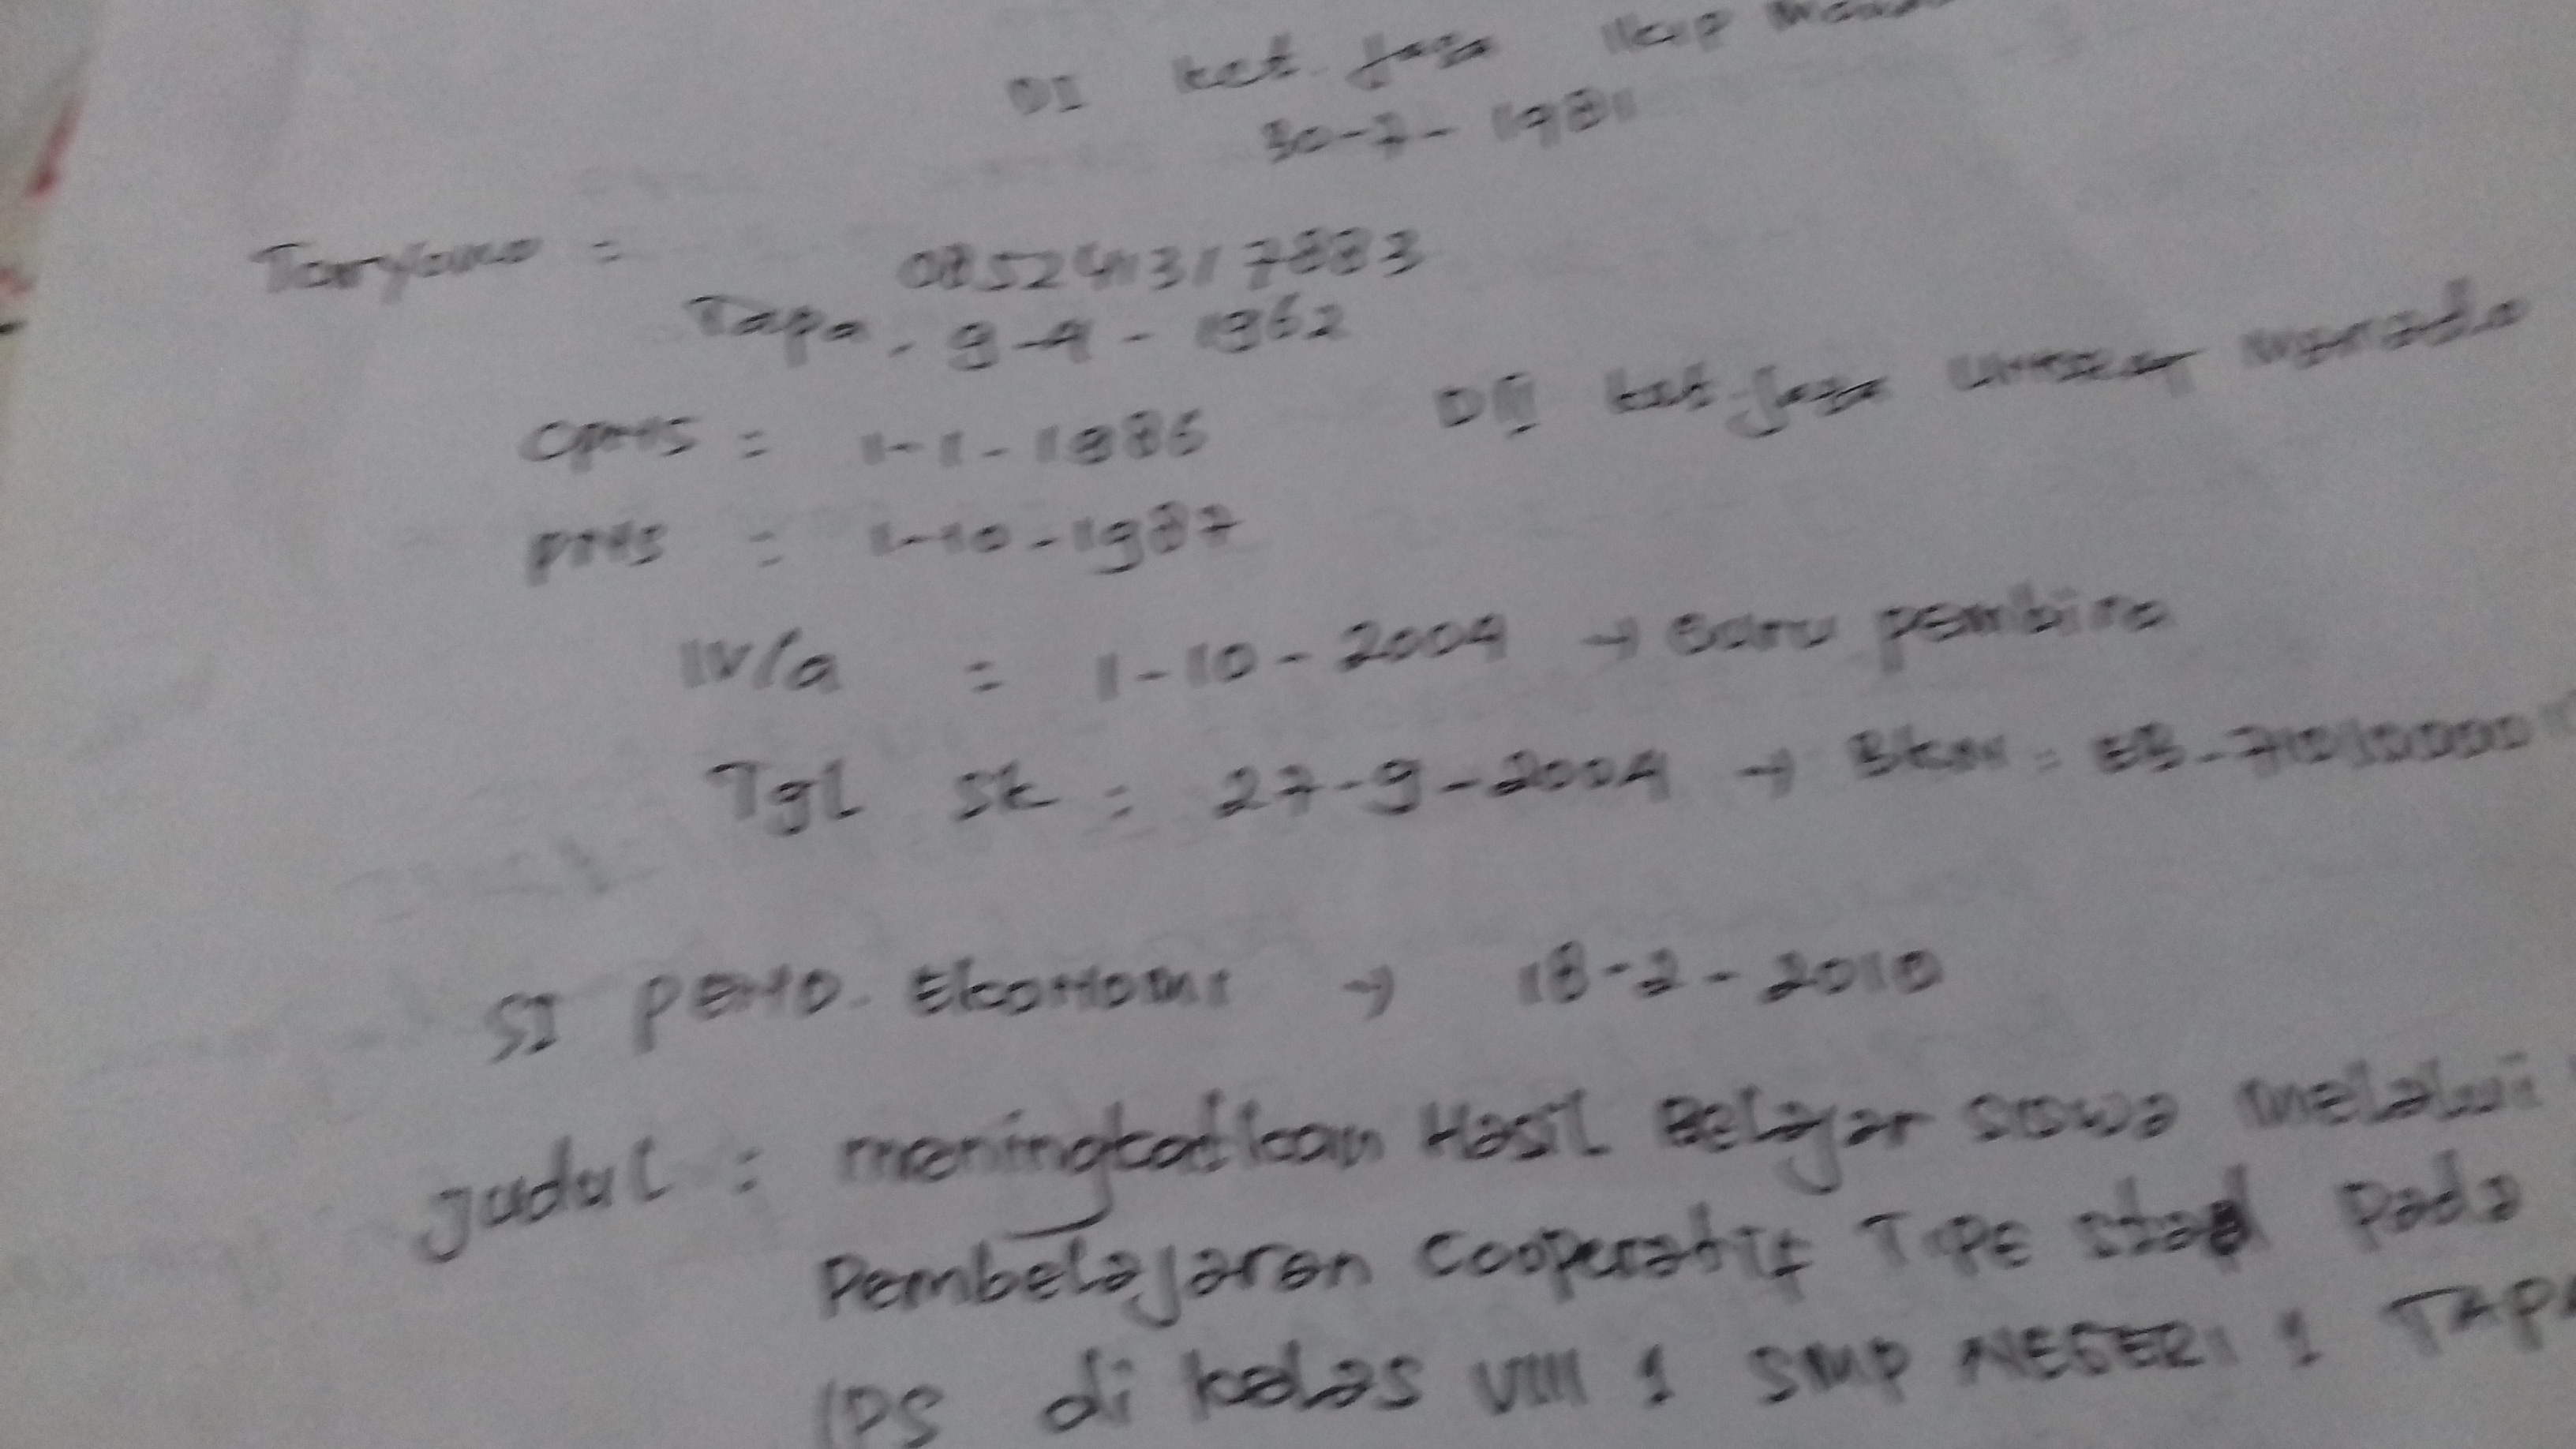 DI ket. Jasa Ikip
30-7-1981
Taryono =
085241317883
Tapa - 9-4-1962
CPNS = 1-1-1986
DIII ket. Jasa Unsrat Manado
PNS = 1-10-1987
IV/a = 1-10-2004 → Guru pembina
Tgl SK = 27-9-2004 → BKN =
SI PEND. EkoNomi → 18-2-2010
Judul : meningkatkan HasiL BeLajar siswa meLaLui
PembeLajaran cooperatif TIPE stad pada
IPS di keLas VIII 1 SMP NEGERI 1